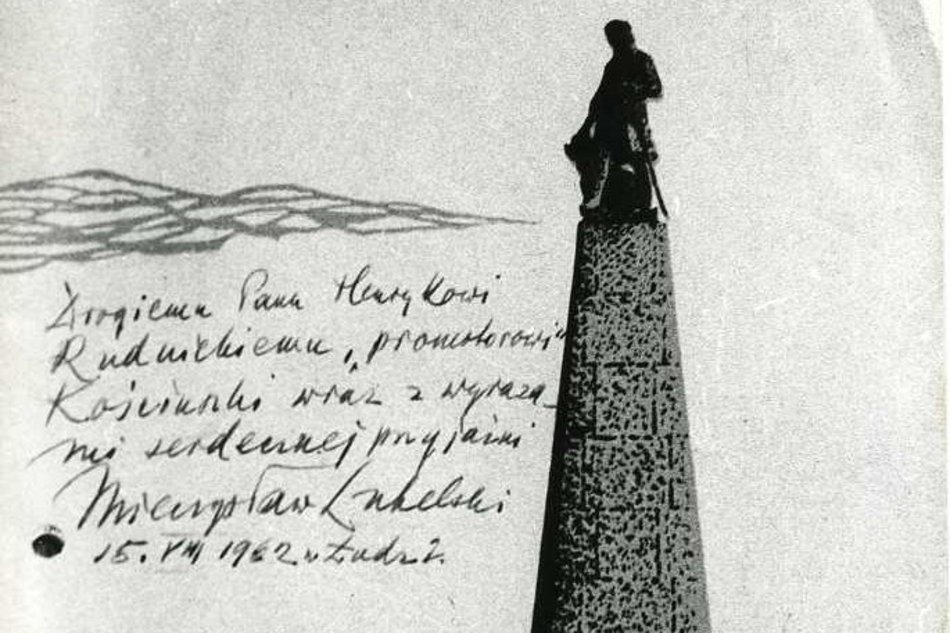 Drogiemu Panu Henrykowi
Rudnickiemu, „promotorowi”
Kościuszki wraz z wyraza-
mi serdecznej przyjaźni
Mieczysław Lubelski
15. VIII 1962 w Łodzi.